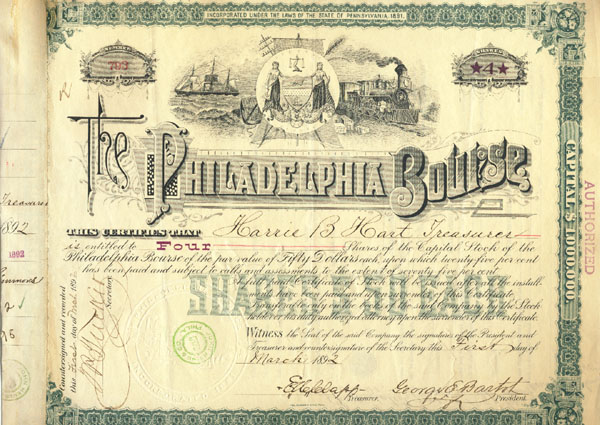 INCORPORATED UNDER THE LAWS OF THE STATE OF PENNSYLVANIA, 1891.
NUMBER
SHARES
★4★
The Philadelphia Bourse
THIS CERTIFIES THAT Harrie B Hart Treasurer
is entitled to Four Shares of the Capital Stock of the
Philadelphia Bourse of the par value of Fifty Dollars each, upon which twenty five per cent
has been paid and subject to calls and assessments to the extent of seventy five per cent.
A full paid Certificate of Stock will be issued after all the install-
ments have been paid and upon surrender of this certificate
transferable only on the books of the said Company by the Stock
holder or his duly authorized attorney upon the surrender of this Certificate.
SHARES $50 EACH
Witness the Seal of the said Company the signatures of the President and
Treasurer and countersignature of the Secretary this First day of
March 1892
Treasurer.
George E Bartol
President.
Countersigned and recorded
this First day of Mch 1892
Secretary.
CAPITAL $1,000,000
AUTHORIZED
Treasurer
1892
1892